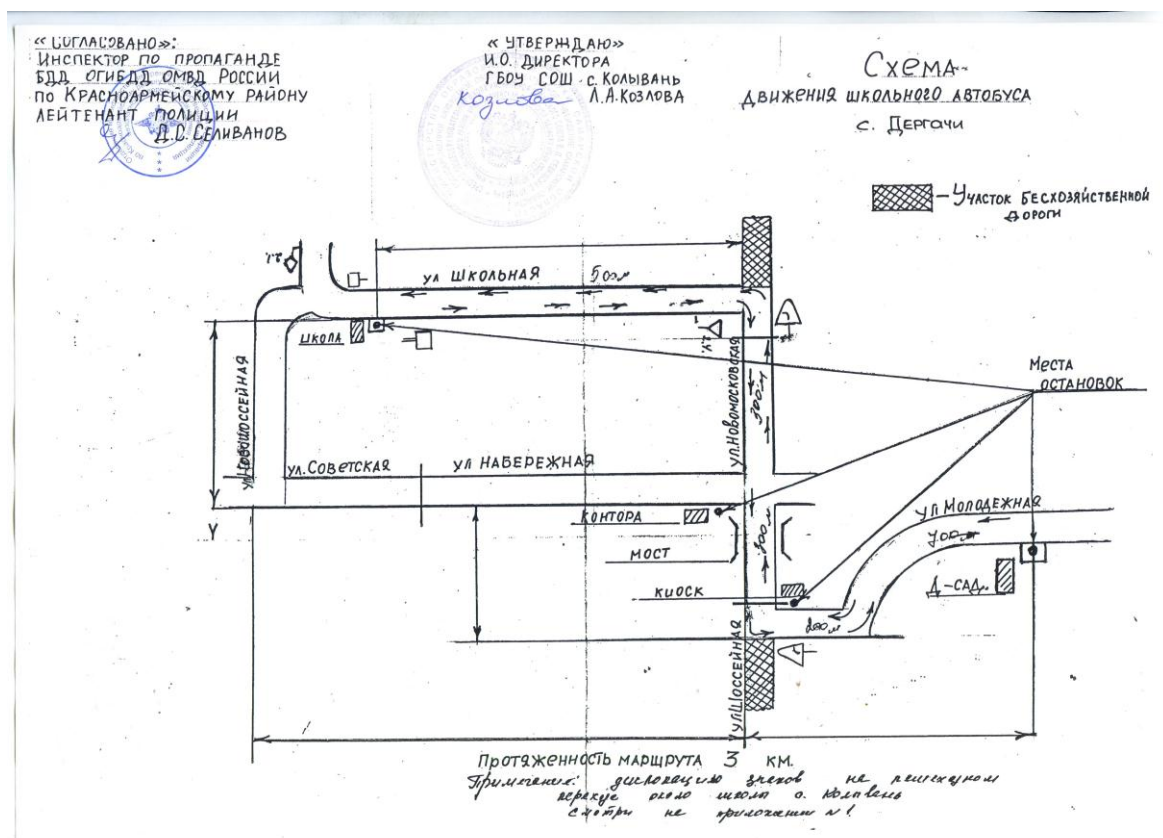 « СОГЛАСОВАНО»:
ИНСПЕКТОР ПО ПРОПАГАНДЕ
БДД ОГИБДД ОМВД РОССИИ
ПО КРАСНОАРМЕЙСКОМУ РАЙОНУ
ЛЕЙТЕНАНТ ПОЛИЦИИ
Д.С. СЕЛИВАНОВ
« УТВЕРЖДАЮ»
И.О. ДИРЕКТОРА
ГБОУ СОШ с. КОЛЫВАНЬ
Козлова Л.А.КОЗЛОВА
СХЕМА
ДВИЖЕНИЯ ШКОЛЬНОГО АВТОБУСА
с. ДЕРГАЧИ
- УЧАСТОК БЕСХОЗЯЙСТВЕННОЙ
ДОРОГИ
УЛ ШКОЛЬНАЯ 500м
ШКОЛА
УЛ.НОВОМОСКОВСКАЯ
300м
МЕСТА
ОСТАНОВОК
УЛ.СОВЕТСКАЯ
УЛ НАБЕРЕЖНАЯ
УЛ МОЛОДЕЖНАЯ
700м
КОНТОРА
МОСТ
КИОСК
Д-САД
200м
УЛ ШОССЕЙНАЯ
ПРОТЯЖЕННОСТЬ МАРШРУТА 3 КМ.
Примечание: дислокацию знаков на пешеходном
около школы с. Колывань
смотри на приложении №1